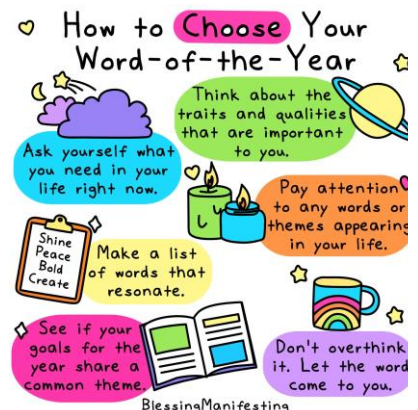 How to Choose Your
Word-of-the-Year
Think about the
traits and qualities
that are important
to you.
Ask yourself what
you need in your
life right now.
Pay attention
to any words or
themes appearing
in your life.
Shine
Peace
Bold
Create
Make a list
of words that
resonate.
See if your
goals for the
year share a
common theme.
Don't overthink
it. Let the word
come to you.
BlessingManifesting